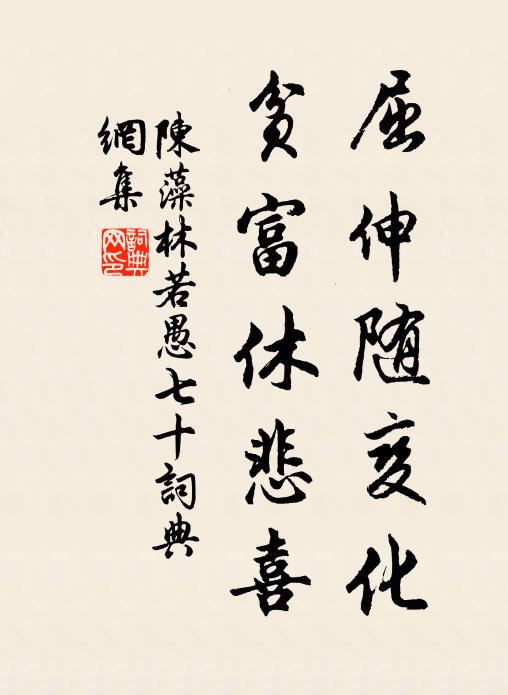 屈伸随变化
貧富休悲喜
陳藻林若愚七十詞典
網集
詞典
网印